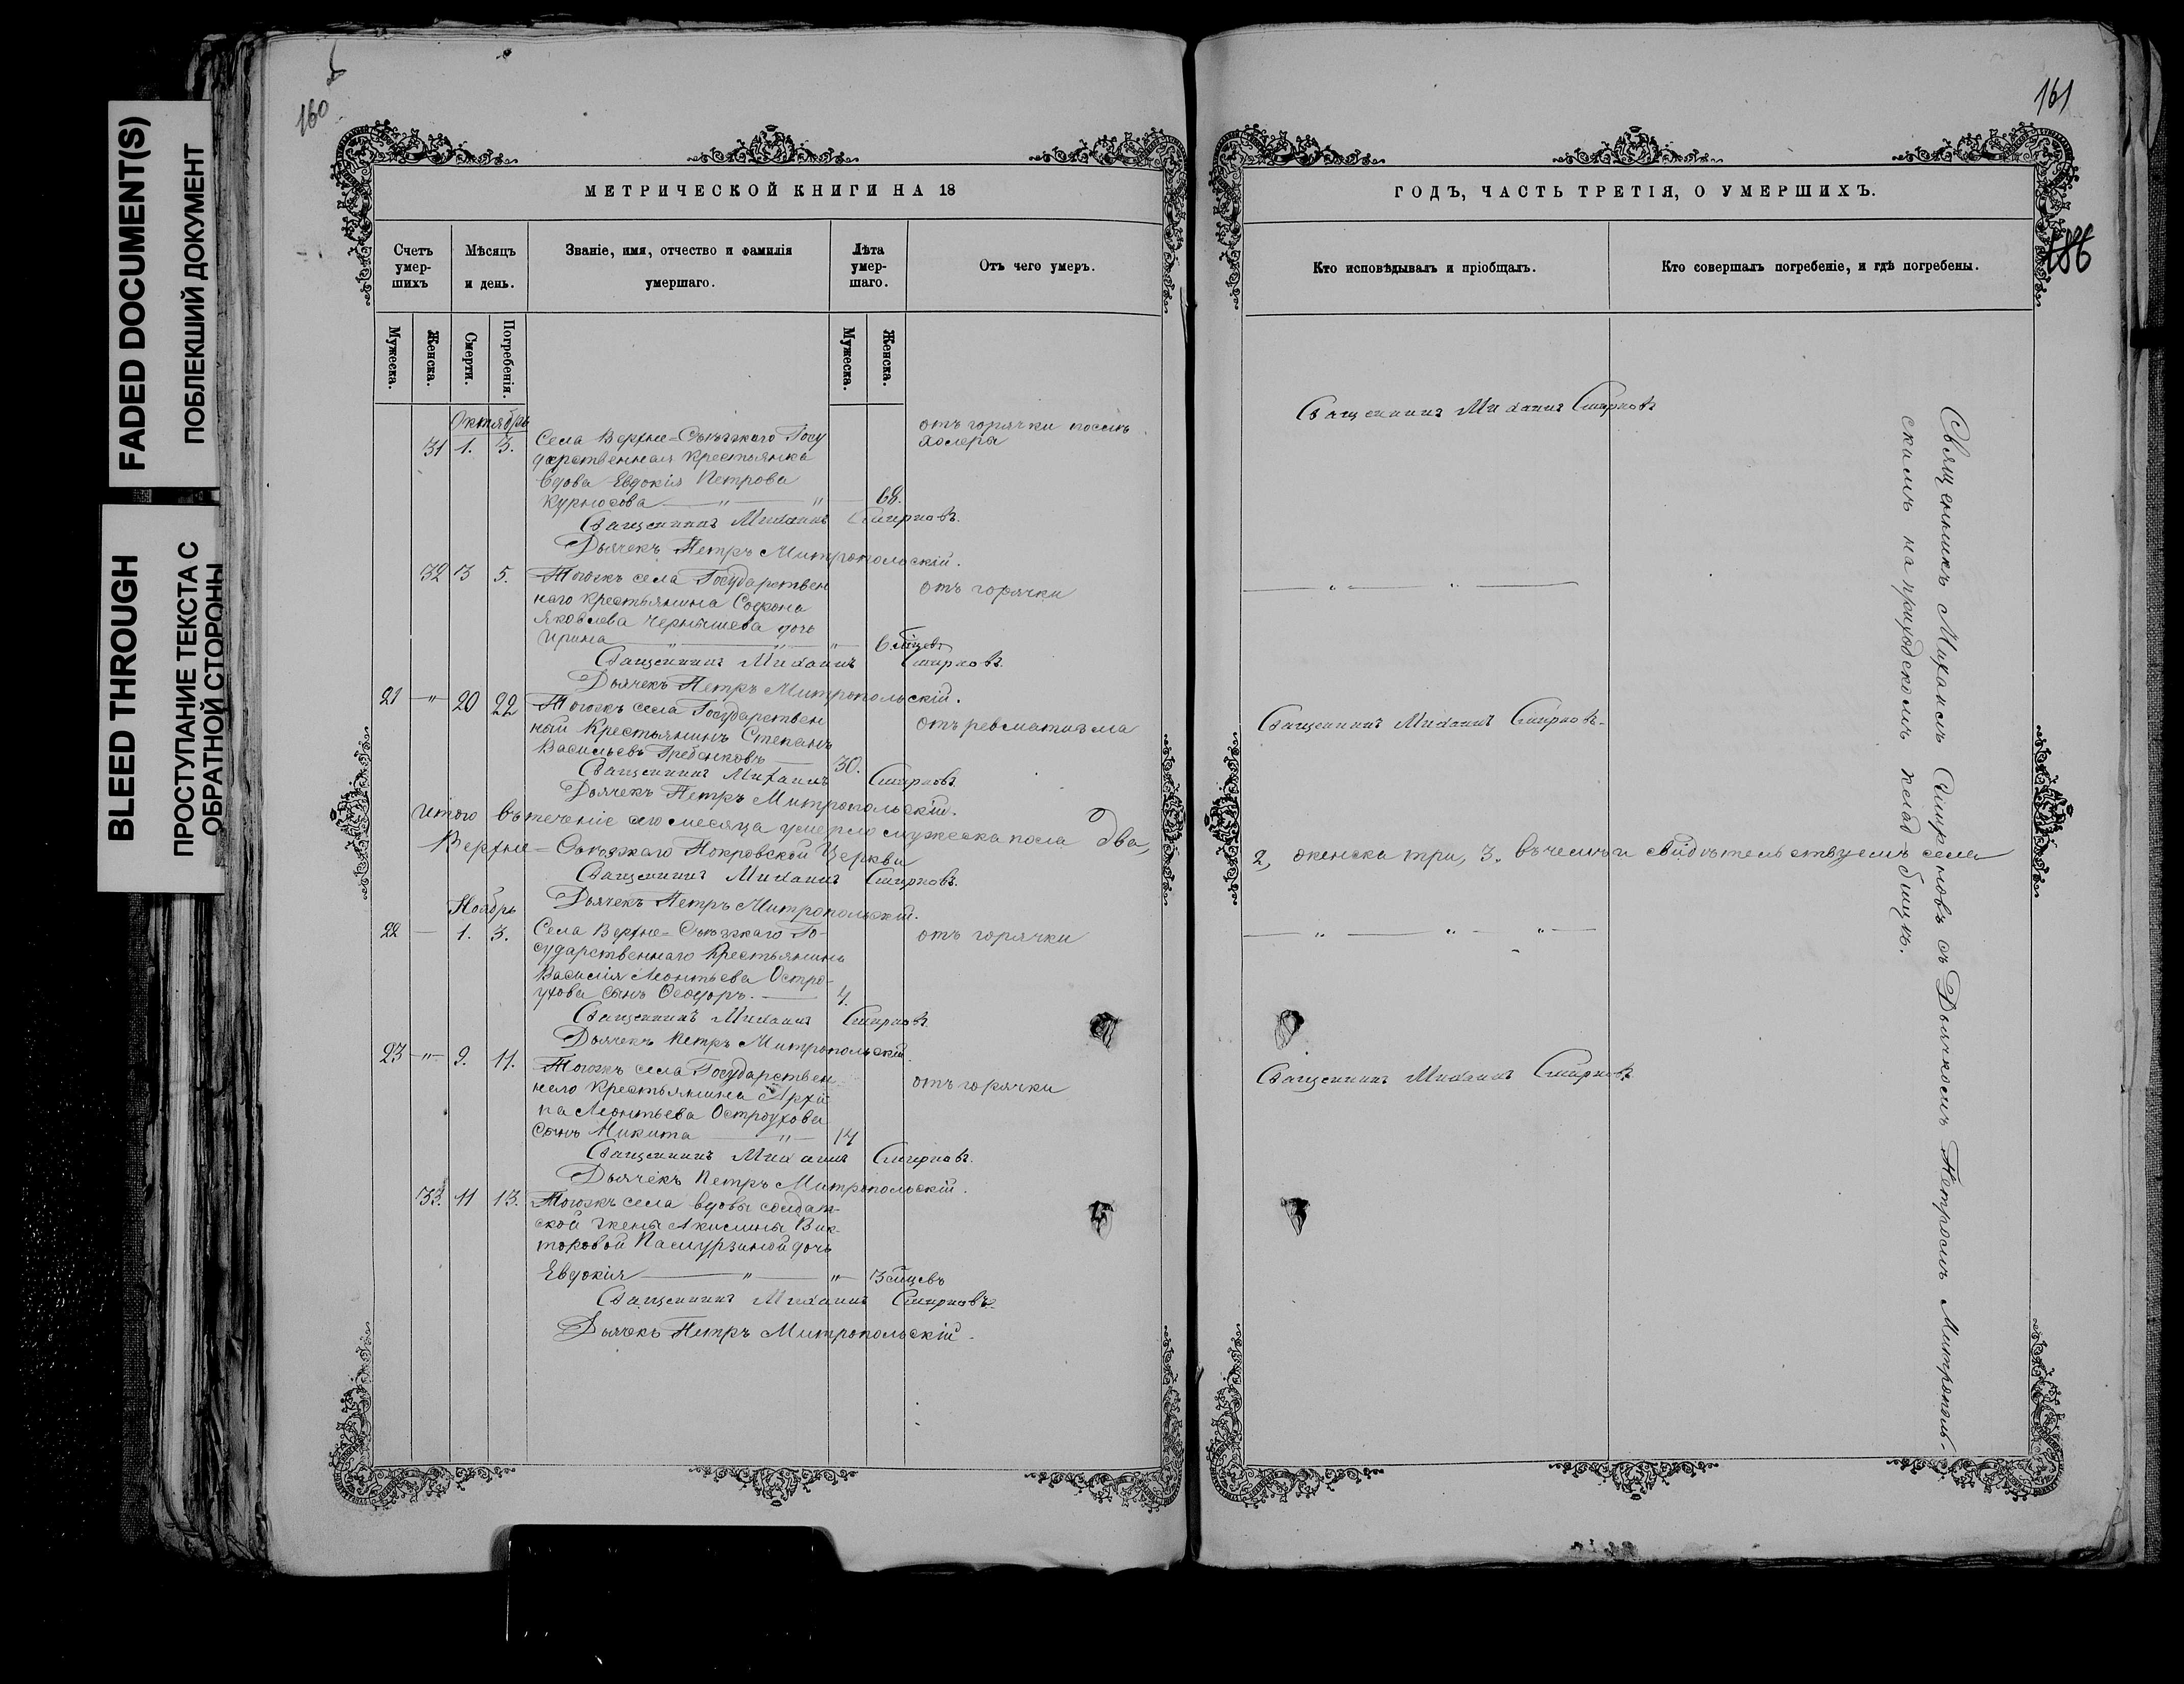 FADED DOCUMENT(S)
ПОБЛЕКШИЙ ДОКУМЕНТ
BLEED THROUGH
ПРОСТУПАНИЕ ТЕКСТА С
ОБРАТНОЙ СТОРОНЫ
160
МЕТРИЧЕСКОЙ КНИГИ НА 18
Счетъ умер-шихъ
Мѣсяцъ и день.
Званіе, имя, отчество и фамилія умершаго.
Лѣта умер-шаго.
Отъ чего умеръ.
Мужеска.
Женска.
Смерти.
Погребенія.
Мужеска.
Женска.
Октябрь
31 1. 3. Села Верхне=Съезжаго Госу
отъ горячки посл
холеры
дарственная крестьянка
вдова Евдокія Петрова
Курносова — " — " — 68.
Священникъ Михаилъ Смирновъ.
Дьячекъ Петръ Митропольскій.
32 3 5. Тогожъ села Государствен
отъ горячки
наго крестьянина Софона
Яковлева Чернышева дочь
Ирина — " — " — 6.
Священникъ Михаилъ Смирновъ.
Дьячекъ Петръ Митропольскій.
21 —"— 20 22 Тогожъ села Государствен
отъ ревматизма
ный Крестьянинъ Степанъ
Васильевъ Гребенковъ — 30.
Священникъ Михаилъ Смирновъ.
Дьячекъ Петръ Митропольскій.
Итого въ теченіе сего месяца умерло мужеска пола два,
Верхне=Съезжаго Покровской Церкви
Священникъ Михаилъ Смирновъ.
Дьячекъ Петръ Митропольскій.
Ноябрь
22 — 1. 3. Села Верхне=Съезжаго Го-
отъ горячки
сударственнаго Крестьянина
Василія Леонтьева Остро-
ухова сынъ Ѳеодоръ. — 4.
Священникъ Михаилъ Смирновъ.
Дьячекъ Петръ Митропольскій.
23 —"— 9. 11. Тогожъ села Государствен
отъ горячки
наго Крестьянина Архи
па Леонтьева Остроухова
сынъ Никита — " — 14
Священникъ Михаилъ Смирновъ.
Дьячекъ Петръ Митропольскій.
33. 11 13. Тогожъ села вдовы солдат-
ской жены Акилины Вик-
торовой Пасмурзиной дочь
Евдокія — " — " — 3
Священникъ Михаилъ Смирновъ.
Дьячекъ Петръ Митропольскій.
161
186
ГОДЪ, ЧАСТЬ ТРЕТІЯ, О УМЕРШИХЪ.
Кто исповѣдывалъ и пріобщалъ.
Кто совершалъ погребеніе, и гдѣ погребены.
Священникъ Михаилъ Смирновъ
— " — " —
Священникъ Михаилъ Смирновъ.
2, женска три, 3. въ чемъ и свидѣтельствуемъ села
— " — " — " —
Священникъ Михаилъ Смирновъ.
Священникъ Михаилъ Смирновъ съ Дьячкомъ Петромъ Митрополь-
скимъ на приходскомъ клад-бищѣ.